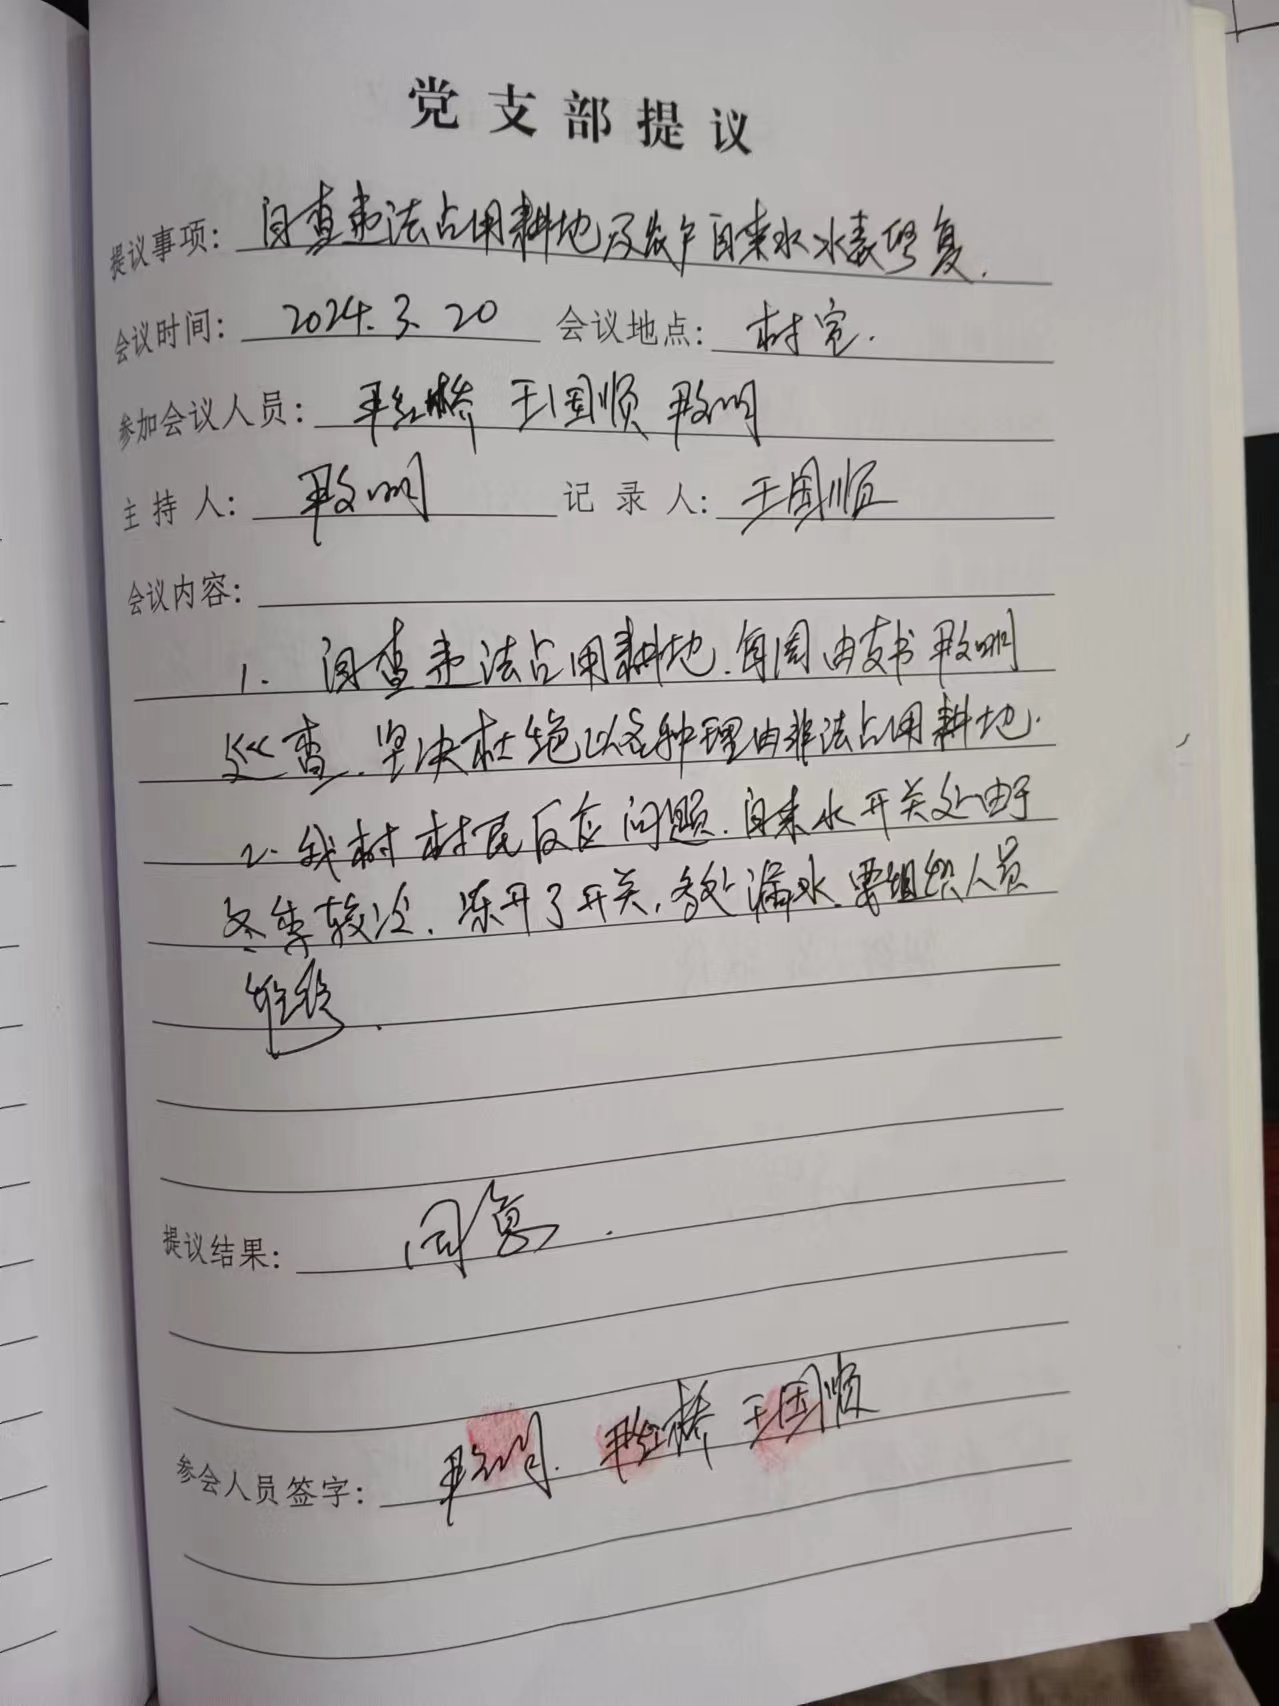 党支部提议
提议事项: 自查违法占用耕地及农户自来水水表修复.
会议时间: 2024.3.20 会议地点: 村室.
参加会议人员: 王国顺
主持人: 记录人: 王国顺
会议内容:
1. 自查违法占用耕地.每周由支书
巡查.坚决杜绝以各种理由非法占用耕地.
2. 我村村民反应问题.自来水开关处由于
冬季较冷.冻开了开关,多处漏水.要组织人员
维修.
提议结果: 同意.
参会人员签字: 王国顺